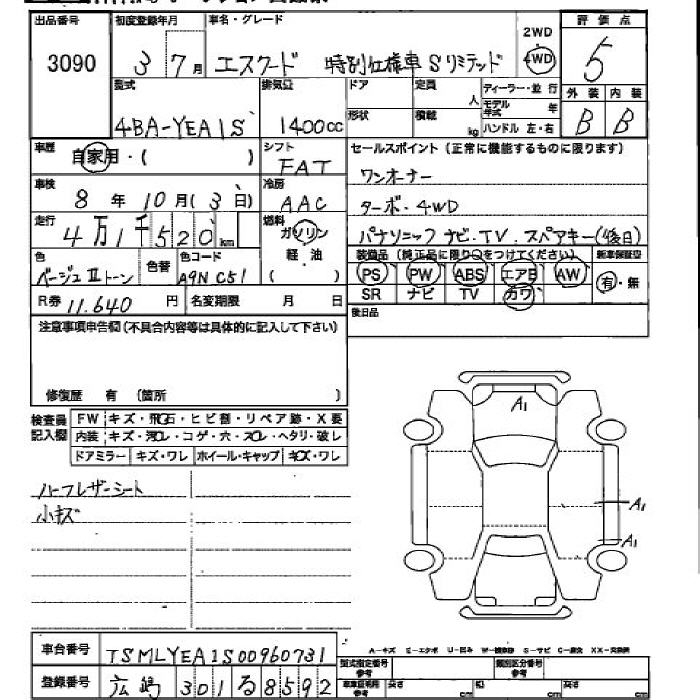 出品番号 初度登録年月 車名・グレード 2WD 評価点
3090 3 7月 エスクード 特別仕様車 Sリミテッド 4WD 5
型式 排気量 ドア 定員 人 ディーラー・並行 外装 内装
4BA-YEA1S 1400cc 形状 積載 kg モデル年式 年 B B
ハンドル 左・右
車歴 自家用・( ) シフト FAT セールスポイント (正常に機能するものに限ります)
車検 8年10月(3日) 冷房 AAC ワンオーナー
走行 4万1千520km 燃料 ガソリン ターボ・4WD
軽・油 ( ) パナソニック ナビ・TV・スペアキー(後日)
色 ベージュⅡトーン 色替 色コード A9N C51 装備品 (純正品に限り○をつけてください) 新車保証空
PS PW ABS エアB AW 有・無
R券 11.640円 名変期限 月 日 SR ナビ TV カワ
注意事項申告欄(不具合内容等は具体的に記入して下さい) 後日品
修復歴 有 (箇所 )
検査員記入欄 FW キズ・飛石・ヒビ割・リペア跡・X要
内装 キズ・汚レ・コゲ・穴・スレ・ヘタリ・破レ
ドアミラー キズ・ワレ ホイール・キャップ キズ・ワレ
A1
ハーフレザーシート
小キズ
A1
A1
車台番号 TSMLYEA1S00960731
A-キズ E-エクボ U-凹み W-補修跡 S-サビ C-腐食 XX-交換済
型式指定番号 参考 類別区分番号 参考
登録番号 広島 301 る 8592 車車証明用 参考 長さ cm 幅 cm 高さ cm